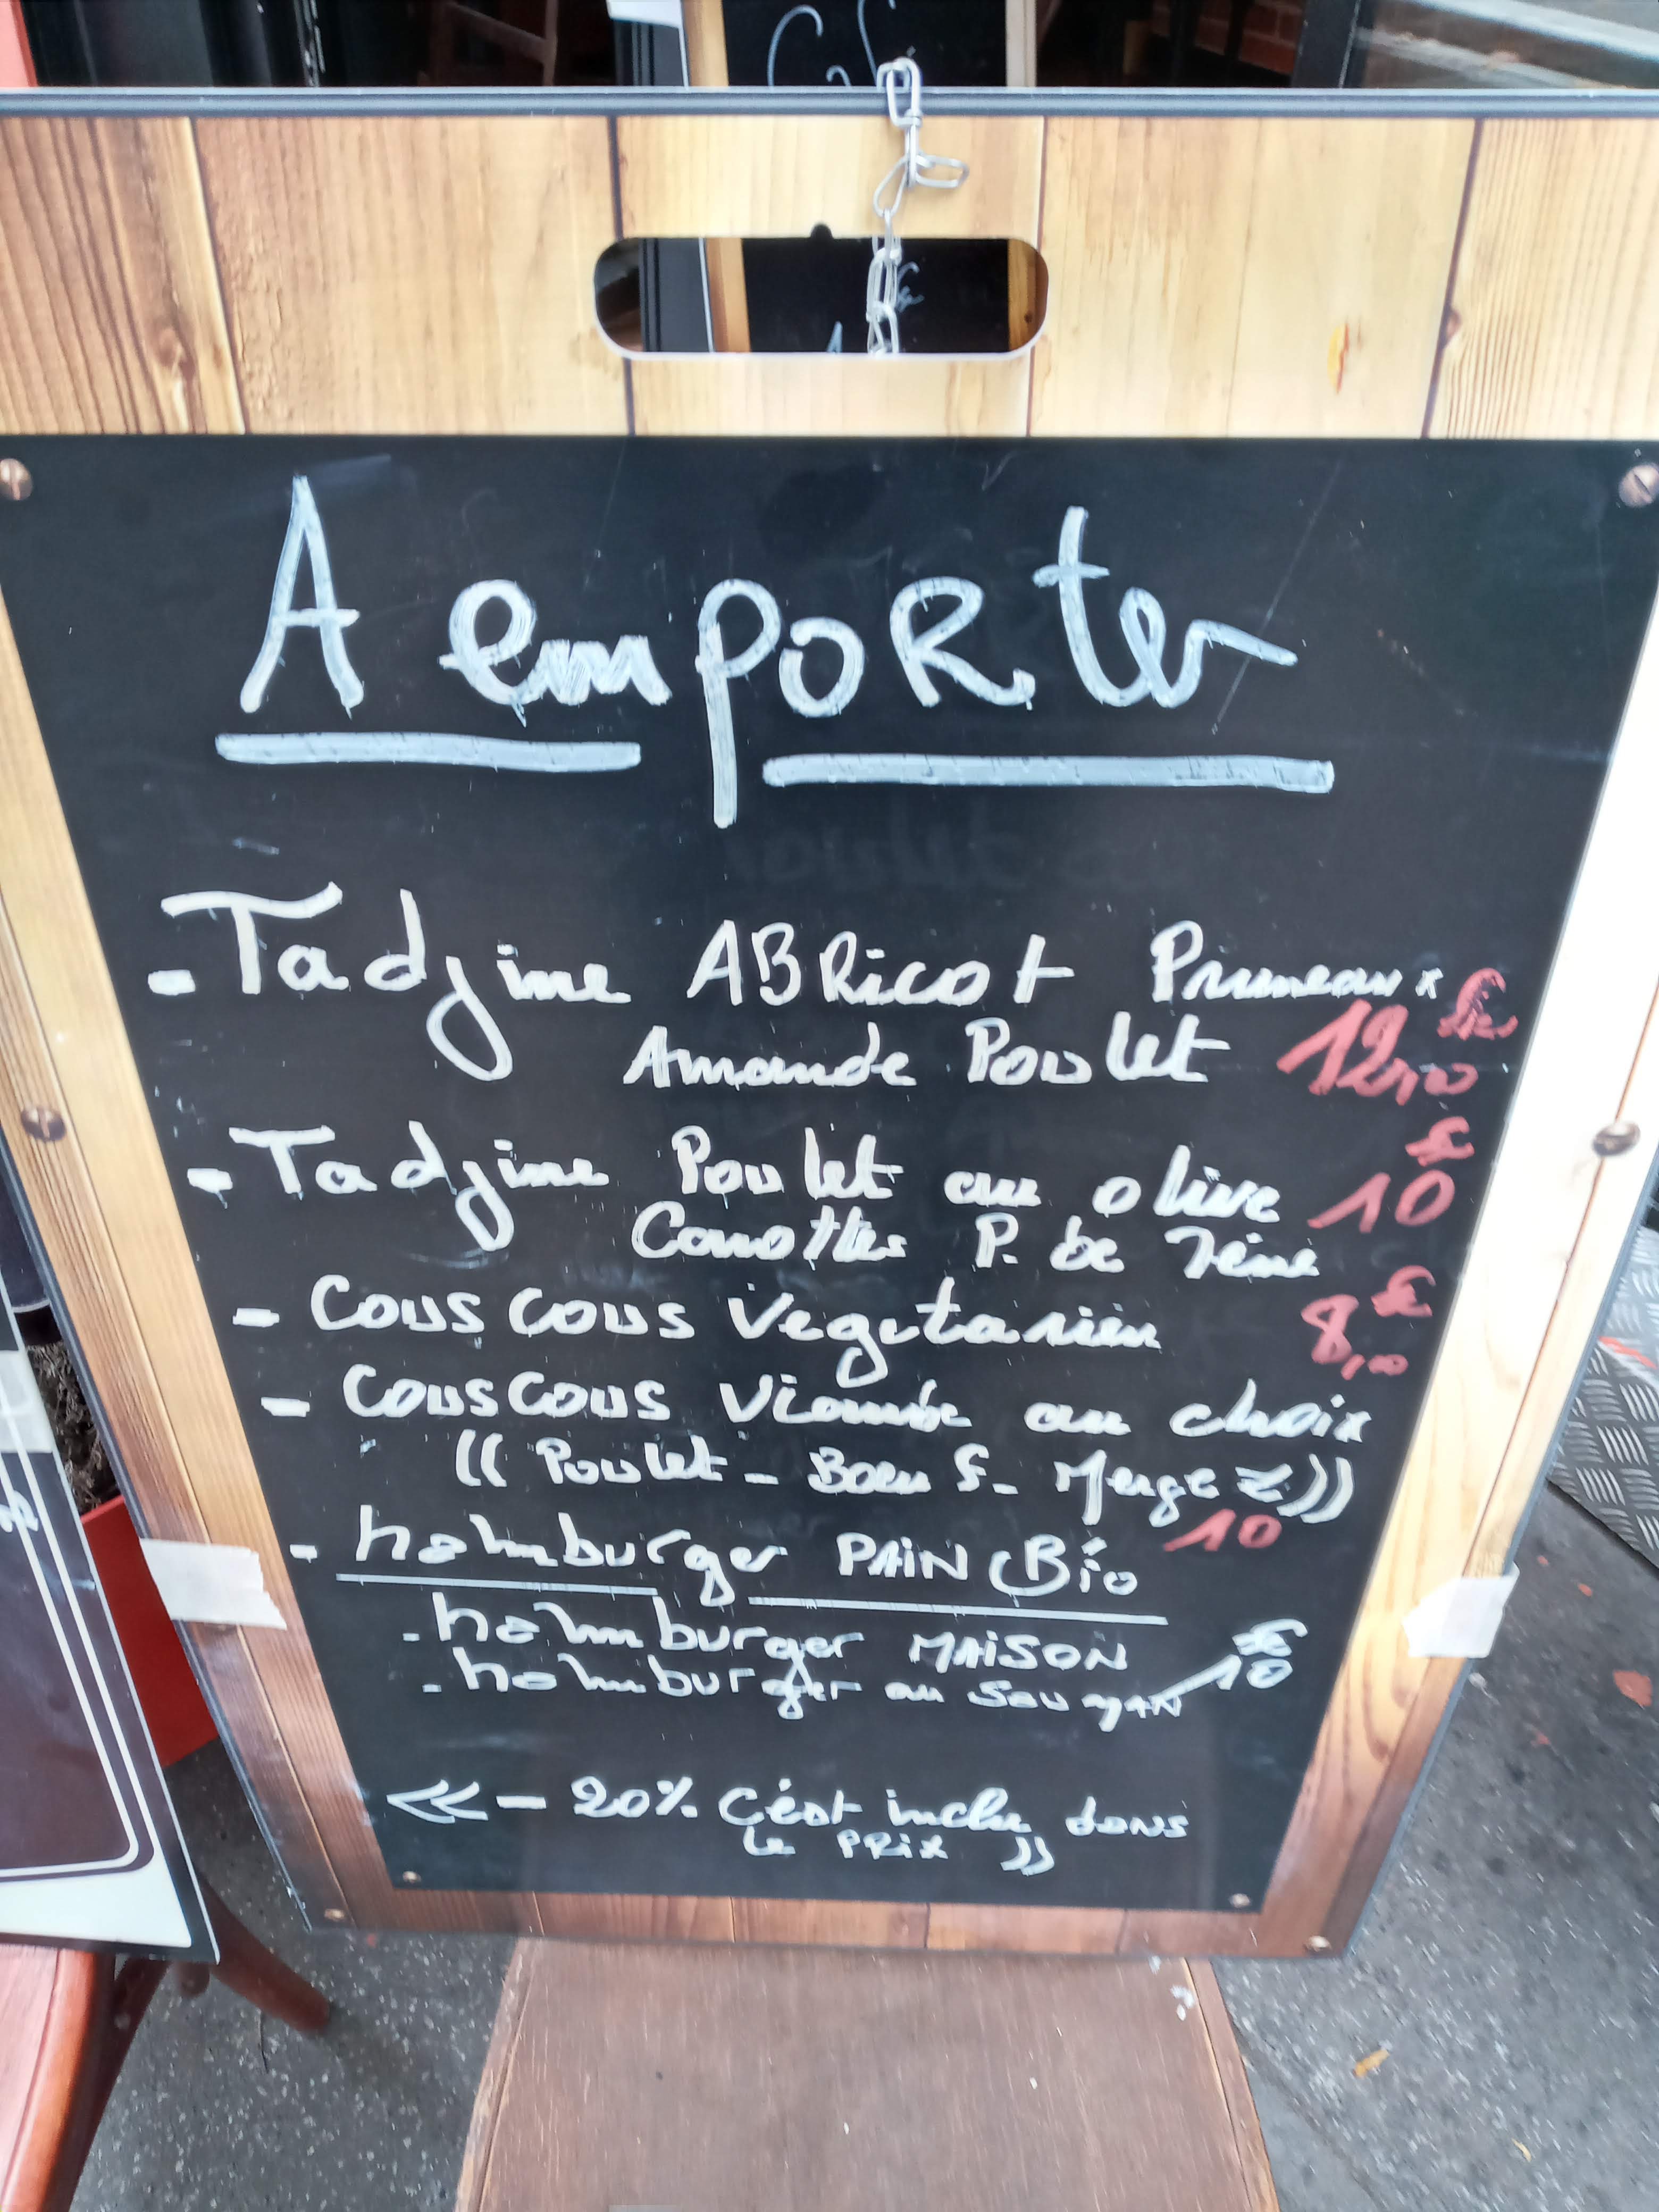 A emporter
- Tadjine ABRicot Pruneaux €
Amande Poulet 12,00
- Tadjine Poulet au olive 10 €
Carottes P. de Terre
- Cous cous Vegetarien 8,00 €
- Couscous Viande au choix
(( Poulet - Boeuf - Merguez ))
- hamburger PAIN Bio 10
- hamburger MAISON €
- hamburger au SAUMAN 10
<< - 20% C'est inclu dans
le PRIX ))